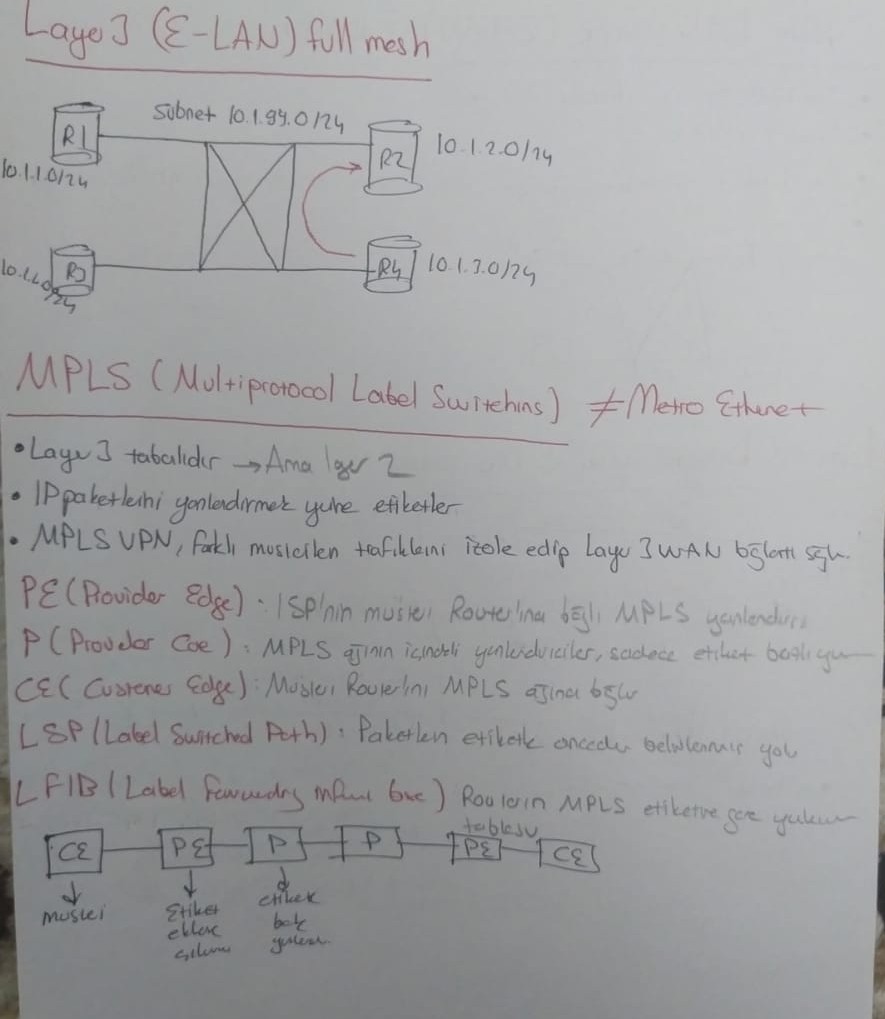 Layer 3 (E-LAN) full mesh
Subnet 10.1.99.0/24
R1
R2
10.1.2.0/24
10.1.1.0/24
R3
R4
10.1.3.0/24
MPLS (Multiprotocol Label Switching) ≠ Metro Ethernet
• Layer 3 tabalıdır → Ama layer 2
• IP paketlerini yönlendirmek yerine etiketler
• MPLS VPN, farklı müşterilerin trafiklerini izole edip Layer 3 WAN bağlantı sağlar.
PE (Provider Edge) : ISP'nin müşteri Router'ına bağlı MPLS yönlendirici
P (Provider Core) : MPLS ağının içindeki yönlendiriciler, sadece etiket
CE (Customer Edge) : Müşteri Router'ını MPLS ağına bağlar
LSP (Label Switched Path) : Paketlerin etiketle önceden belirlenmiş yolu
LFIB (Label Forwarding Inform base) Routerın MPLS etiketine göre
tablosu
CE PE P P PE CE
müşteri
Etiket
ekler
etiket